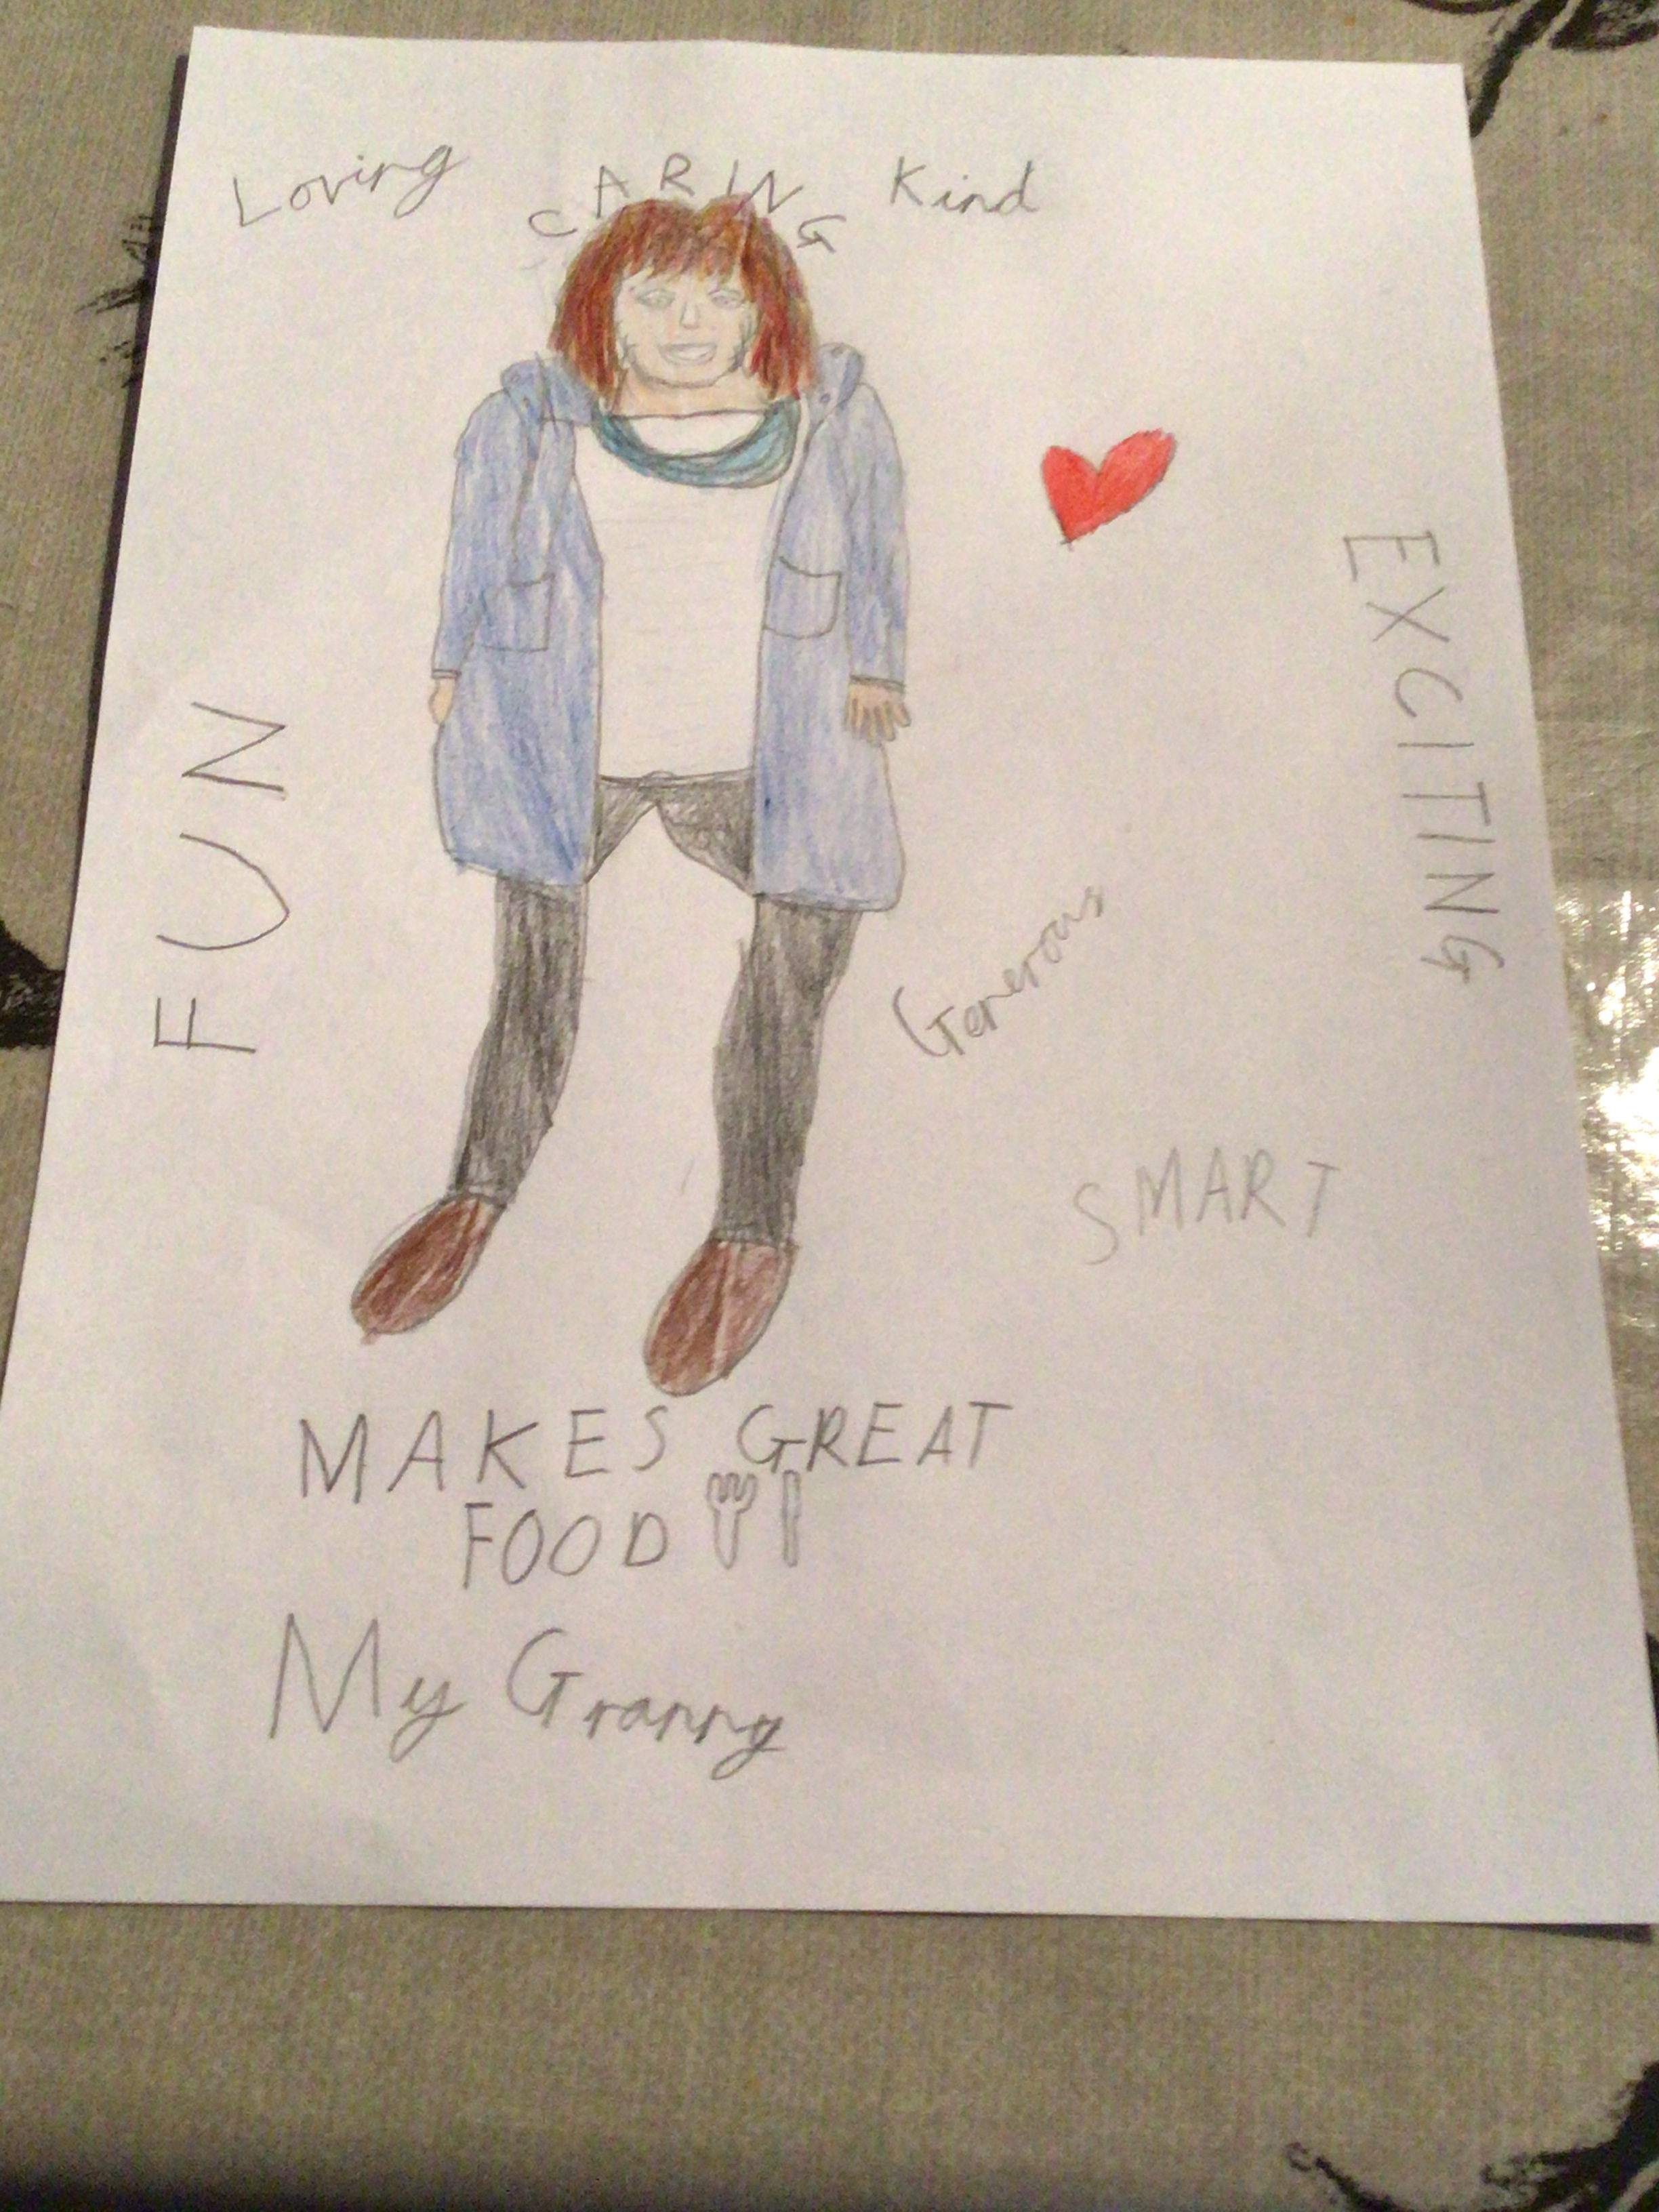 Loving
CARING
Kind
FUN
EXCITING
Generous
SMART
MAKES GREAT
FOOD
My Granny